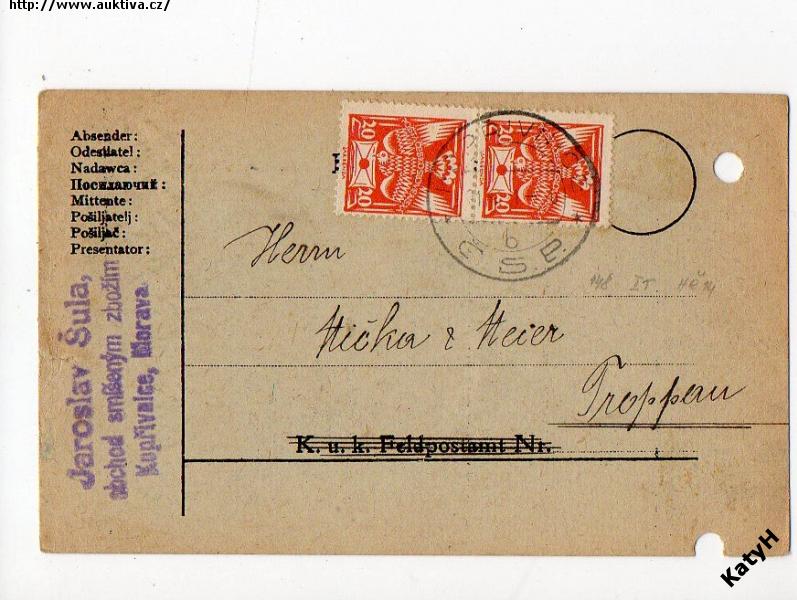 http://www.auktiva.cz/
Absender:
Odesilatel:
Nadawca:
Посилаючий:
Mittente:
Pošiljatelj:
Pošiljač:
Presentator:
20 20
20 20
6
Č.S.P.
Herrn
148 II.
Hička & Heier
Troppau
K. u. k. Feldpostamt Nr.
Jaroslav Šula,
obchod smíšeným zbožím
Kopřivnice, Morava.
KatyH